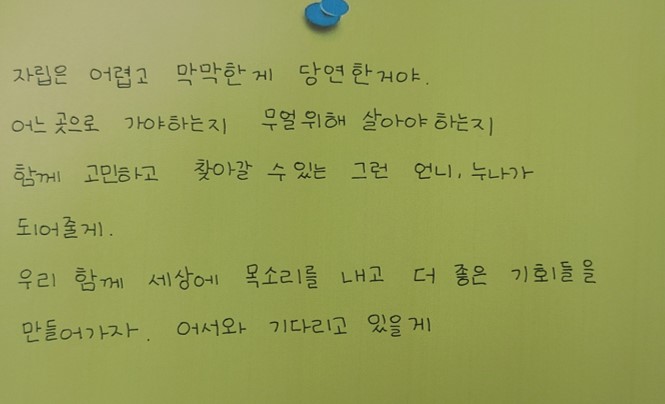 자립은 어렵고 막막한게 당연한거야.
어느 곳으로 가야하는지 무얼 위해 살아야 하는지
함께 고민하고 찾아갈 수 있는 그런 언니, 누나가
되어줄게.
우리 함께 세상에 목소리를 내고 더 좋은 기회들을
만들어가자. 어서와 기다리고 있을게